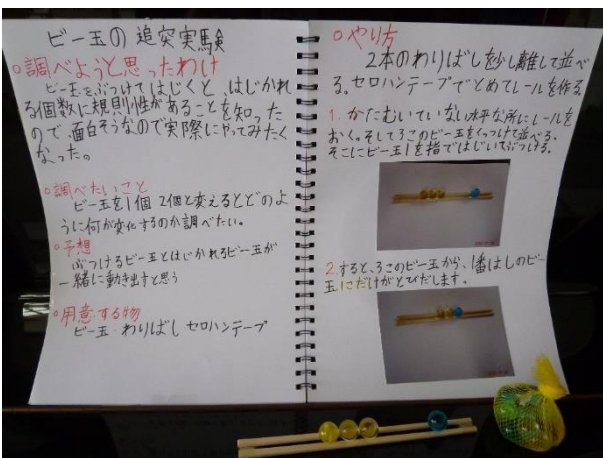 ビー玉の追突実験
○調べようと思ったわけ
ビー玉をぶつけてはじくと、はじかれ
る個数に規則性があることを知った
ので、面白そうなので実際にやってみたく
なった。
○調べたいこと
ビー玉を1個 2個と変えるとどのよ
うに何が変化するのか調べたい。
○予想
ぶつけるビー玉とはじかれるビー玉が
一緒に動き出すと思う
○用意する物
ビー玉・わりばし セロハンテープ
○やり方
2本のわりばしを少し離して並べ
る。セロハンテープでとめてレールを作る。
1. かたむいていない水平な所にレールを
おく。そして3このビー玉をくっつけて並べる。
そこにビー玉1を指ではじいてぶつける。
2. すると、3このビー玉から、1番はしのビー
玉1こだけがとびだします。